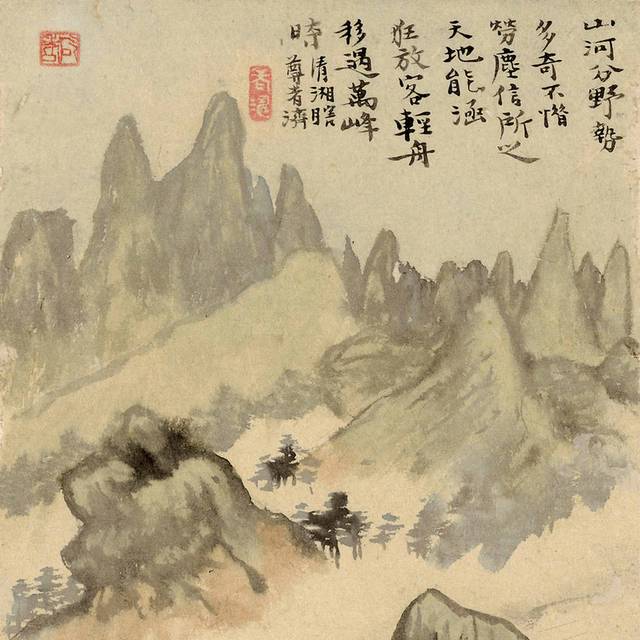 山河分野勢
多奇不惜
勞塵信所之
天地能涵
狂放客輕舟
移過萬峰
時
清湘瞎
尊者濟